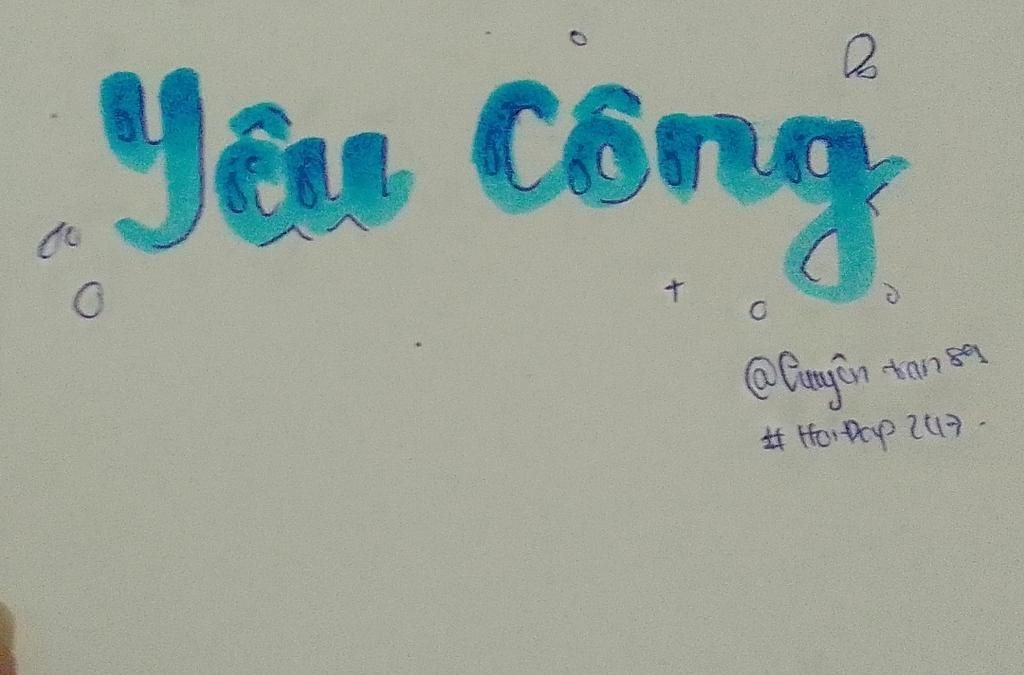 Yêu Công
@Cuyên tran 89
# HoiĐap 247